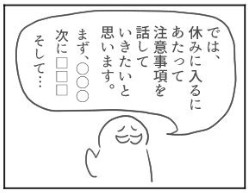 では、
休みに入るに
あたって
注意事項を
話して
いきたいと
思います。
まず、○○○
次に□□□
そして…